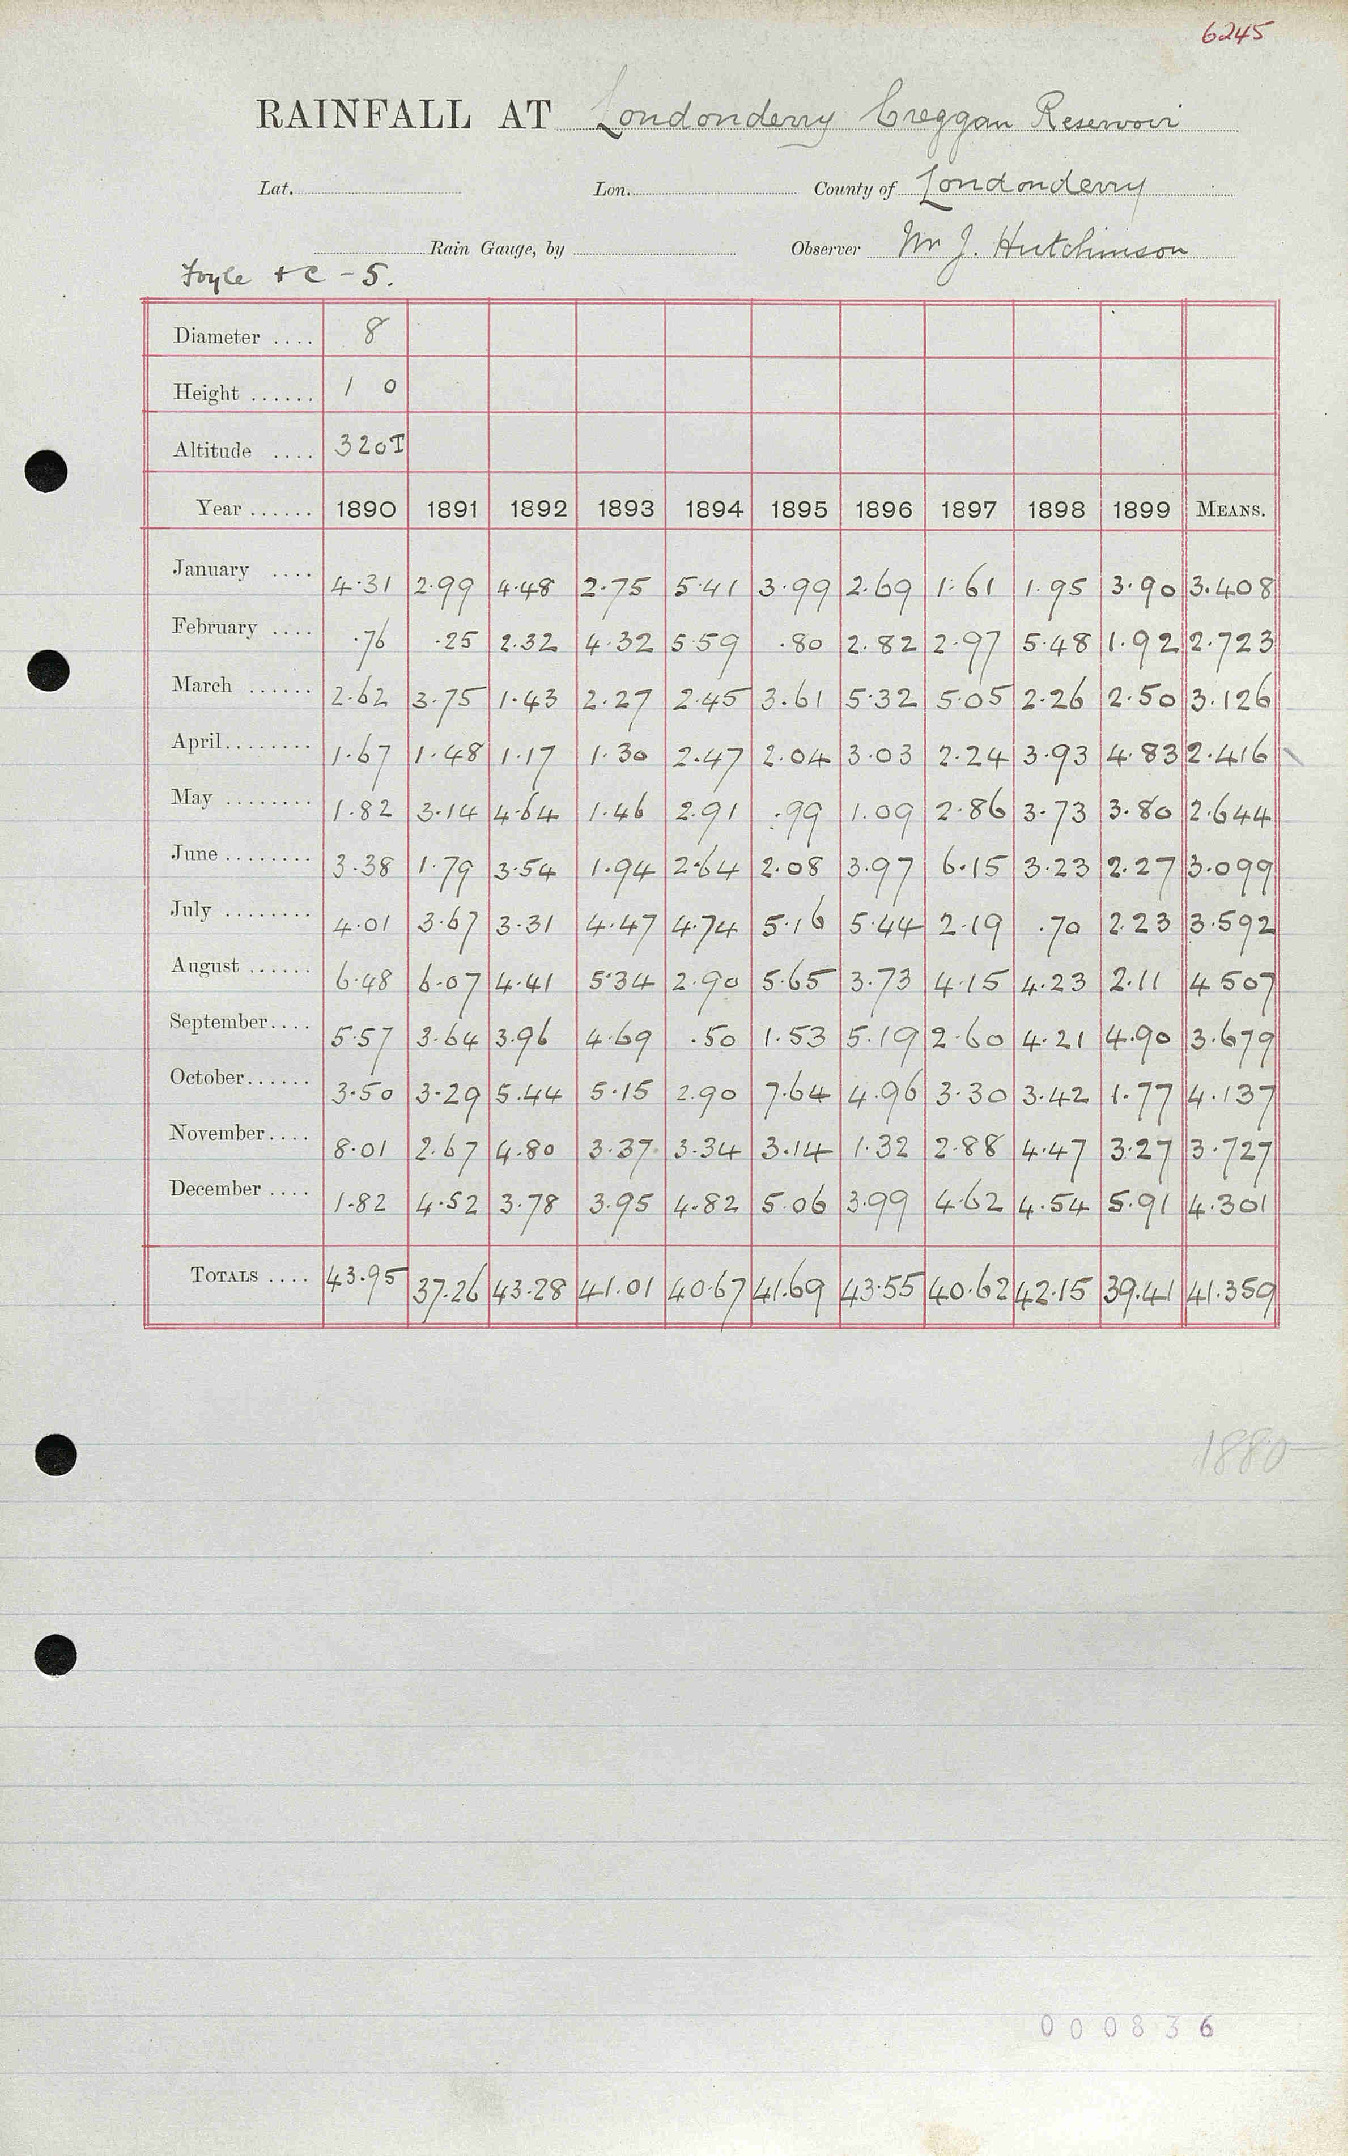 6245
RAINFALL AT Londonderry Creggan Reservoir
Lat. Lon. County of Londonderry
Rain Gauge, by Observer Mr J. Hutchinson
Foyle + C - 5.
Diameter .... 8
Height ...... 1 0
Altitude .... 320T
Year ...... 1890 1891 1892 1893 1894 1895 1896 1897 1898 1899 MEANS.
January .... 4.31 2.99 4.48 2.75 5.41 3.99 2.69 1.61 1.95 3.90 3.408
February .... .76 .25 2.32 4.32 5.59 .80 2.82 2.97 5.48 1.92 2.723
March ...... 2.62 3.75 1.43 2.27 2.45 3.61 5.32 5.05 2.26 2.50 3.126
April........ 1.67 1.48 1.17 1.30 2.47 2.04 3.03 2.24 3.93 4.83 2.416
May ........ 1.82 3.14 4.64 1.46 2.91 .99 1.09 2.86 3.73 3.80 2.644
June ........ 3.38 1.79 3.54 1.94 2.64 2.08 3.97 6.15 3.23 2.27 3.099
July ........ 4.01 3.67 3.31 4.47 4.74 5.16 5.44 2.19 .70 2.23 3.592
August ...... 6.48 6.07 4.41 5.34 2.90 5.65 3.73 4.15 4.23 2.11 4.507
September.... 5.57 3.64 3.96 4.69 .50 1.53 5.19 2.60 4.21 4.90 3.679
October...... 3.50 3.29 5.44 5.15 2.90 7.64 4.96 3.30 3.42 1.77 4.137
November.... 8.01 2.67 4.80 3.37 3.34 3.14 1.32 2.88 4.47 3.27 3.727
December .... 1.82 4.52 3.78 3.95 4.82 5.06 3.99 4.62 4.54 5.91 4.301
TOTALS .... 43.95 37.26 43.28 41.01 40.67 41.69 43.55 40.62 42.15 39.41 41.359
1880
000836